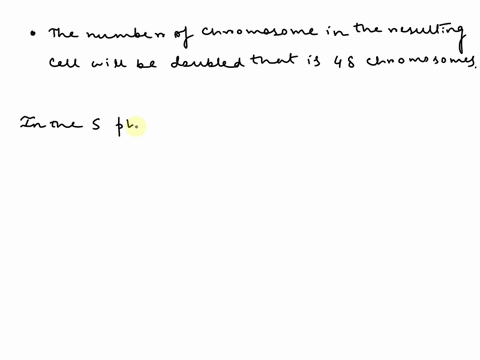 • The number of chromosome in the resulting
cell will be doubled that is 48 chromosomes.
In the S ph